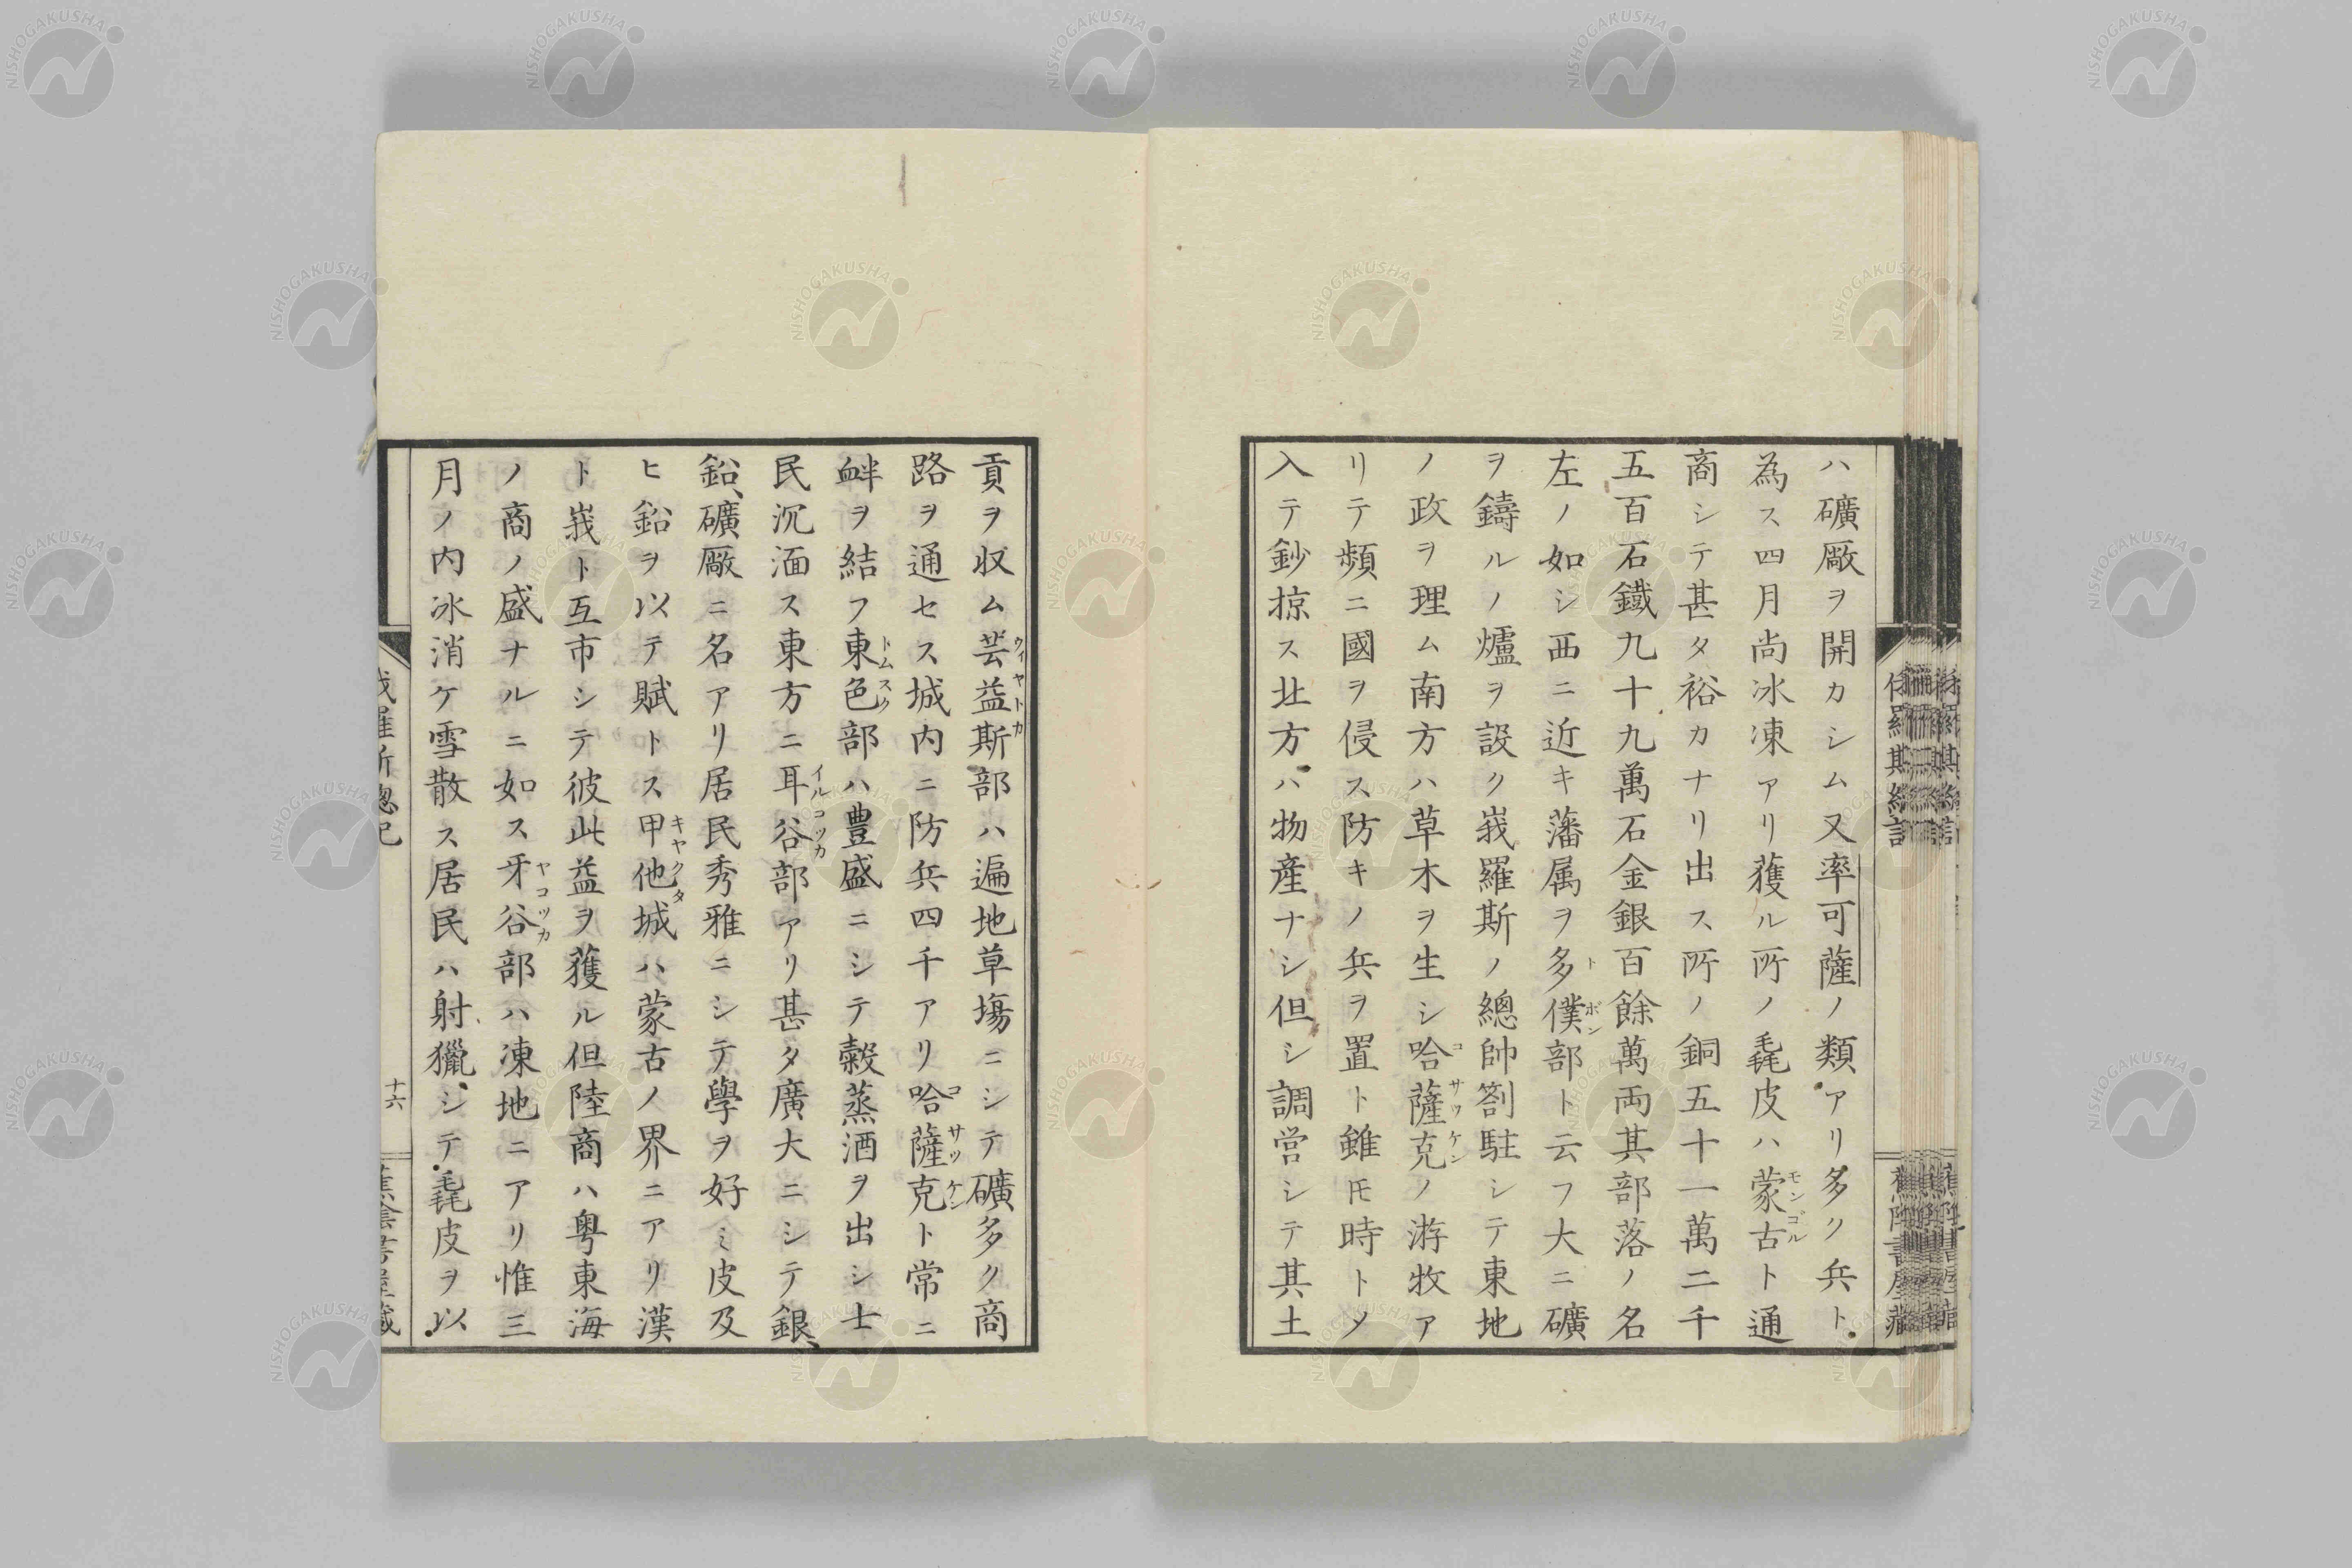 ハ礦厰ヲ開カシム又率可薩ノ類アリ多ク兵ト
為ス四月尚冰凍アリ獲ル所ノ毳皮ハ蒙古ト通
モンゴル
商シテ甚タ裕カナリ出ス所ノ銅五十一萬二千
五百石鐵九十九萬石金銀百餘萬両其部落ノ名
左ノ如シ西ニ近キ藩属ヲ多僕部ト云フ大ニ礦
トボン
ヲ鑄ルノ爐ヲ設ク峩羅斯ノ總帥劄駐シテ東地
ノ政ヲ理ム南方ハ草木ヲ生シ哈薩克ノ游牧ア
コサツケン
リテ頻ニ國ヲ侵ス防キノ兵ヲ置ト雖𪜈時トメ
入テ鈔掠ス北方ハ物産ナシ但シ調営シテ其土
貢ヲ収ム芸益斯部ハ遍地草塲ニシテ礦多ク商
ウイヤトカ
路ヲ通セス城内ニ防兵四千アリ哈薩克ト常ニ
コサツケン
衅ヲ結フ東色部ハ豊盛ニシテ穀蒸酒ヲ出シ士
トムスク
民沉湎ス東方ニ耳谷部アリ甚タ廣大ニシテ銀
イルコツカ
鉛礦厰ニ名アリ居民秀雅ニシテ學ヲ好ミ皮及
ヒ鉛ヲ以テ賦トス甲他城ハ蒙古ノ界ニアリ漢
キヤクタ
ト峩ト互市シテ彼此益ヲ獲ル但陸商ハ粤東海
ノ商ノ盛ナルニ如ス牙谷部ハ凍地ニアリ惟三
ヤコツカ
月ノ内冰消ケ雪散ス居民ハ射獵シテ毳皮ヲ以
十六
NISHOGAKUSHA